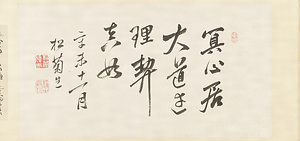 冥心居
大道
理契
真如
辛未十一月
松菊生